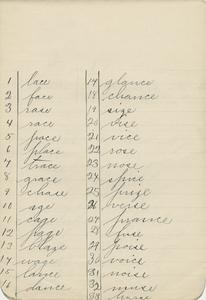 1 lace
2 face
3 rase
4 race
5 pace
6 place
7 trace
8 grace
9 chase
10 age
11 cage
12 page
13 stage
14 wage
15 lance
16 dance
17 glance
18 chance
19 size
20 vise
21 vice
22 rose
23 nose
24 spice
25
26 verse
27 prance
28 fuse
29 poise
30 voice
31 noise
32 nurse
33